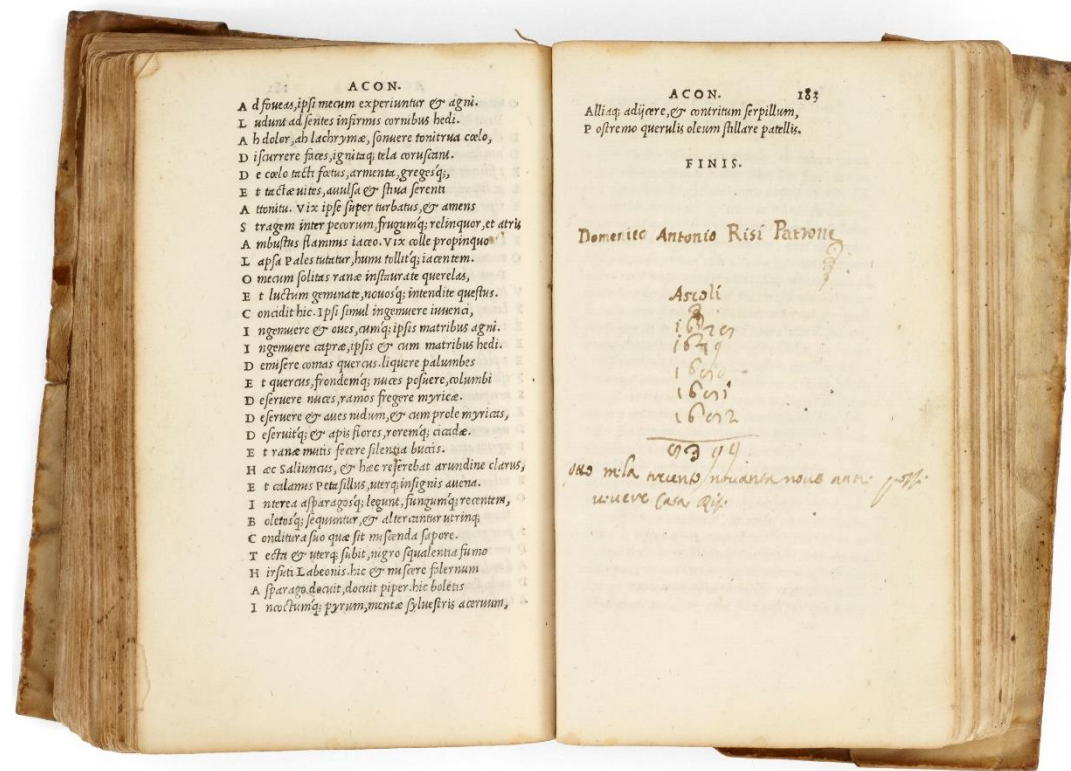 ACON.
A d foueas, ipsi mecum experiuntur & agni.
L udunt ad sentes infirmis cornibus hedi.
A h dolor, ah lachrymæ, sonuere tonitrua cœlo,
D iscurrere faces, ignitaq; tela coruscant.
D e cœlo tacti fœtus, armenta, gregesq́;,
E t tactæ uites, auulsa & stiua serenti
A ttonitu. Vix ipse super turbatus, & amens
S tragem inter pecorum, frugumq́; relinquor, et atris
A mbustus flammis iaceo. Vix colle propinquo
L apsa Pales tutatur, humi tollitq́; iacentem.
O mecum solitas ranæ instaurate querelas,
E t luctum geminate, nouosq́; intendite questus.
C oncidit hic. Ipsi simul ingemuere iuuenci,
I ngemuere & oues, cumq́; ipsis matribus agni.
I ngemuere capræ, ipsis & cum matribus hedi.
D emisere comas quercus. liquere palumbes
E t quercus, frondemq́; nuces posuere, columbi
D eseruere nuces, ramos fregere myricæ.
D eseruere & aues nidum, & cum prole myricas,
D eseruitq́; & apis flores, roremq́; cicadæ.
E t ranæ mutis fecere silentia buccis.
H æc Saliuncus, & hæc referebat arundine clarus,
E t calamis Petasillus, uterq; insignis auena.
I nterea asparagosq́; legunt, fungumq́; recentem,
B oletosq́; sequuntur, & altercantur utrinq;
C onditura suo quæ sit miscenda sapore.
T ecta & uterq; subit, nigro squalentia fumo
H irsuti Labeonis. hic & miscere falernum
A sparago docuit, docuit piper. hic boletis
I ncoctumq́; pyrum, mentæ syluestris aceruum,
ACON. 183
Alliaq; adijcere, & contritum serpillum,
P ostremo querulis oleum stillare patellis.
FINIS.
Domenico Antonio Risi Patrone
Ascoli
1649
1650
1651
1652